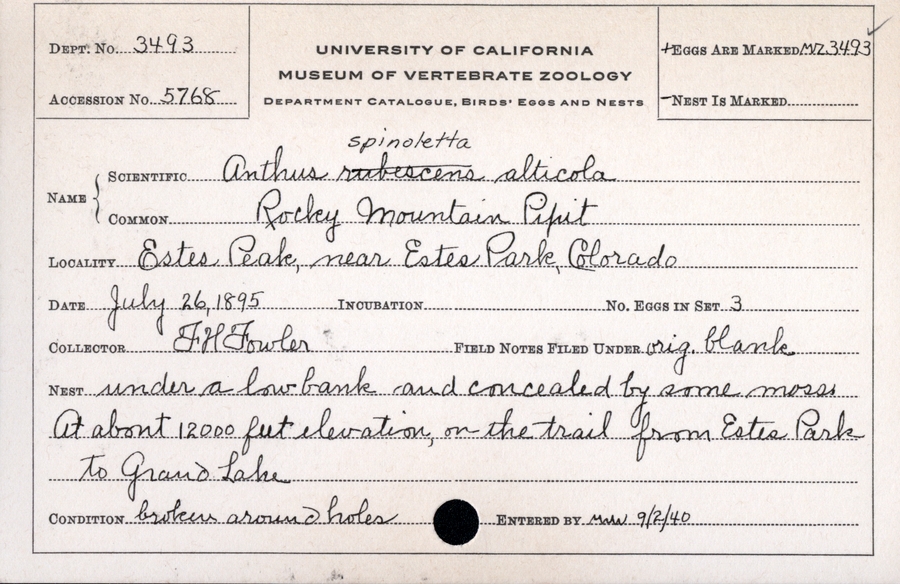 DEPT. NO. 3493
ACCESSION NO. 5768
UNIVERSITY OF CALIFORNIA
MUSEUM OF VERTEBRATE ZOOLOGY
DEPARTMENT CATALOGUE, BIRDS' EGGS AND NESTS
+EGGS ARE MARKED MVZ3493 ✓
-NEST IS MARKED
spinoletta
NAME { SCIENTIFIC Anthus ~~rubescens~~ alticola
COMMON Rocky Mountain Pipit
LOCALITY Estes Peak, near Estes Park, Colorado
DATE July 26, 1895 INCUBATION NO. EGGS IN SET 3
COLLECTOR F H Fowler FIELD NOTES FILED UNDER orig. blank
NEST under a low bank and concealed by some moss.
At about 12000 feet elevation, on the trail from Estes Park
to Grand Lake
CONDITION broken around holes ENTERED BY 9/2/40